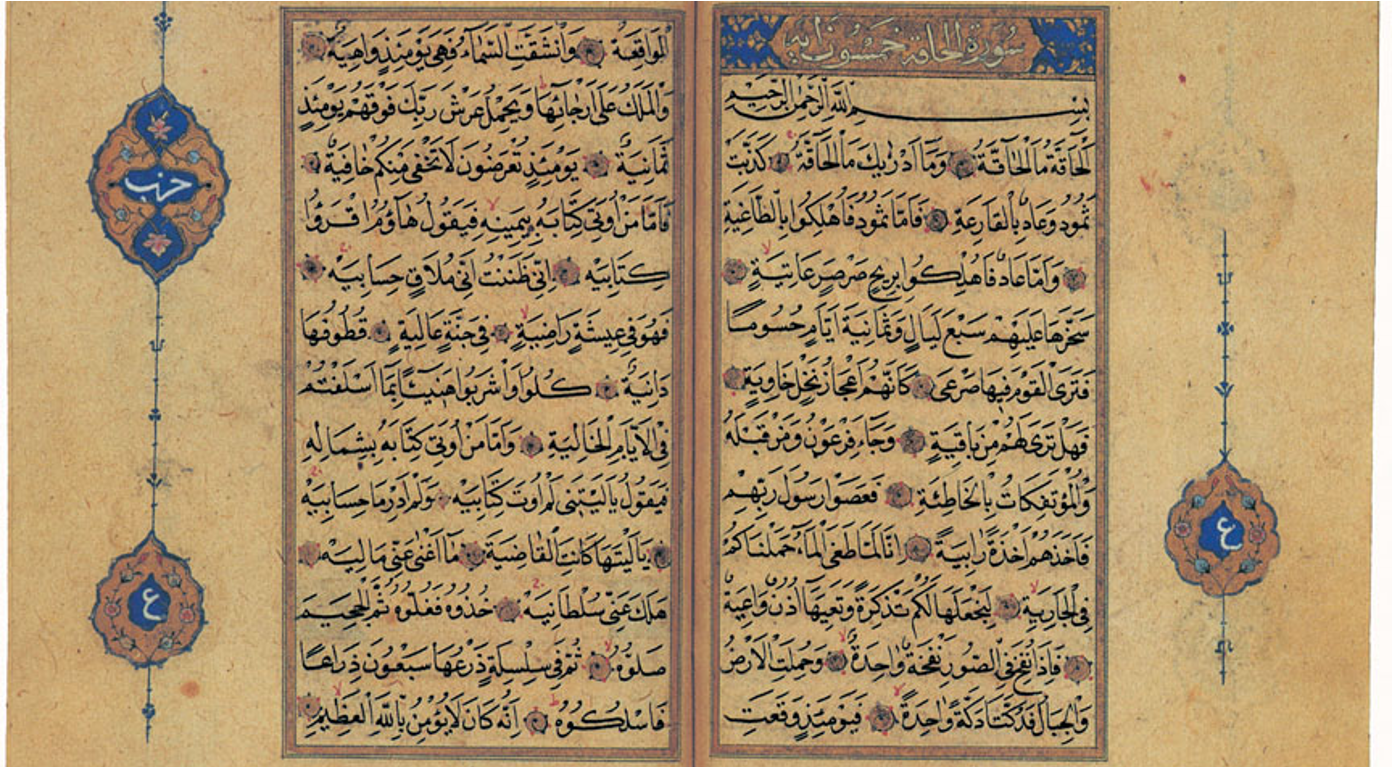 سورة الحاقة خمسون اية
بسم الله الرحمن الرحيم
اَلْحَاقَّةُ مَا الْحَاقَّةُ وَمَا اَدْرٰيكَ مَا الْحَاقَّةُ كَذَّبَتْ
ثَمُودُ وَعَادٌ بِالْقَارِعَةِ فَاَمَّا ثَمُودُ فَاُهْلِكُوا بِالطَّاغِيَةِ
وَاَمَّا عَادٌ فَاُهْلِكُوا بِرِيحٍ صَرْصَرٍ عَاتِيَةٍ
سَخَّرَهَا عَلَيْهِمْ سَبْعَ لَيَالٍ وَثَمَانِيَةَ اَيَّامٍ حُسُومًا
فَتَرَى الْقَوْمَ فِيهَا صَرْعٰى كَاَنَّهُمْ اَعْجَازُ نَخْلٍ خَاوِيَةٍ
فَهَلْ تَرٰى لَهُمْ مِنْ بَاقِيَةٍ وَجَاءَ فِرْعَوْنُ وَمَنْ قَبْلَهُ
وَالْمُؤْتَفِكَاتُ بِالْخَاطِئَةِ فَعَصَوْا رَسُولَ رَبِّهِمْ
فَاَخَذَهُمْ اَخْذَةً رَابِيَةً اِنَّا لَمَّا طَغَى الْمَاءُ حَمَلْنَاكُمْ
فِي الْجَارِيَةِ لِنَجْعَلَهَا لَكُمْ تَذْكِرَةً وَتَعِيَهَا اُذُنٌ وَاعِيَةٌ
فَاِذَا نُفِخَ فِي الصُّورِ نَفْخَةٌ وَاحِدَةٌ وَحُمِلَتِ الْاَرْضُ
وَالْجِبَالُ فَدُكَّتَا دَكَّةً وَاحِدَةً فَيَوْمَئِذٍ وَقَعَتِ
ع
الْوَاقِعَةُ وَانْشَقَّتِ السَّمَاءُ فَهِيَ يَوْمَئِذٍ وَاهِيَةٌ
وَالْمَلَكُ عَلٰى اَرْجَائِهَا وَيَحْمِلُ عَرْشَ رَبِّكَ فَوْقَهُمْ يَوْمَئِذٍ
ثَمَانِيَةٌ يَوْمَئِذٍ تُعْرَضُونَ لَا تَخْفٰى مِنْكُمْ خَافِيَةٌ
فَاَمَّا مَنْ اُوتِيَ كِتَابَهُ بِيَمِينِهِ فَيَقُولُ هَاؤُمُ اقْرَؤُا
كِتَابِيَهْ اِنِّي ظَنَنْتُ اَنِّي مُلَاقٍ حِسَابِيَهْ
فَهُوَ فِي عِيشَةٍ رَاضِيَةٍ فِي جَنَّةٍ عَالِيَةٍ قُطُوفُهَا
دَانِيَةٌ كُلُوا وَاشْرَبُوا هَنِيئًا بِمَا اَسْلَفْتُمْ
فِي الْاَيَّامِ الْخَالِيَةِ وَاَمَّا مَنْ اُوتِيَ كِتَابَهُ بِشِمَالِهِ
فَيَقُولُ يَا لَيْتَنِي لَمْ اُوتَ كِتَابِيَهْ وَلَمْ اَدْرِ مَا حِسَابِيَهْ
يَا لَيْتَهَا كَانَتِ الْقَاضِيَةَ مَا اَغْنٰى عَنِّي مَالِيَهْ
هَلَكَ عَنِّي سُلْطَانِيَهْ خُذُوهُ فَغُلُّوهُ ثُمَّ الْجَحِيمَ
صَلُّوهُ ثُمَّ فِي سِلْسِلَةٍ ذَرْعُهَا سَبْعُونَ ذِرَاعًا
فَاسْلُكُوهُ اِنَّهُ كَانَ لَا يُؤْمِنُ بِاللّٰهِ الْعَظِيمِ
حزب
ع